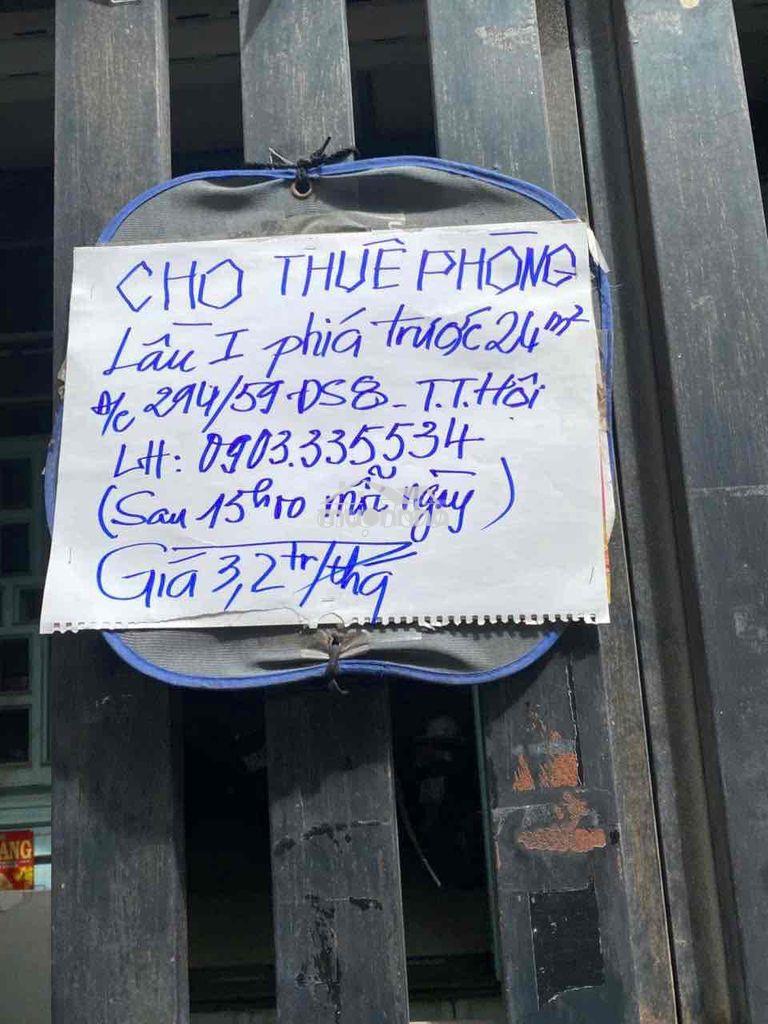 CHO THUÊ PHÒNG
Lầu I phiá trước 24m²
Đ/c 294/59-DS8-T.T.Hôi
LH: 0903.335534
(Sau 15h00 mỗi ngày)
Giá 3,2tr/thg
ANG